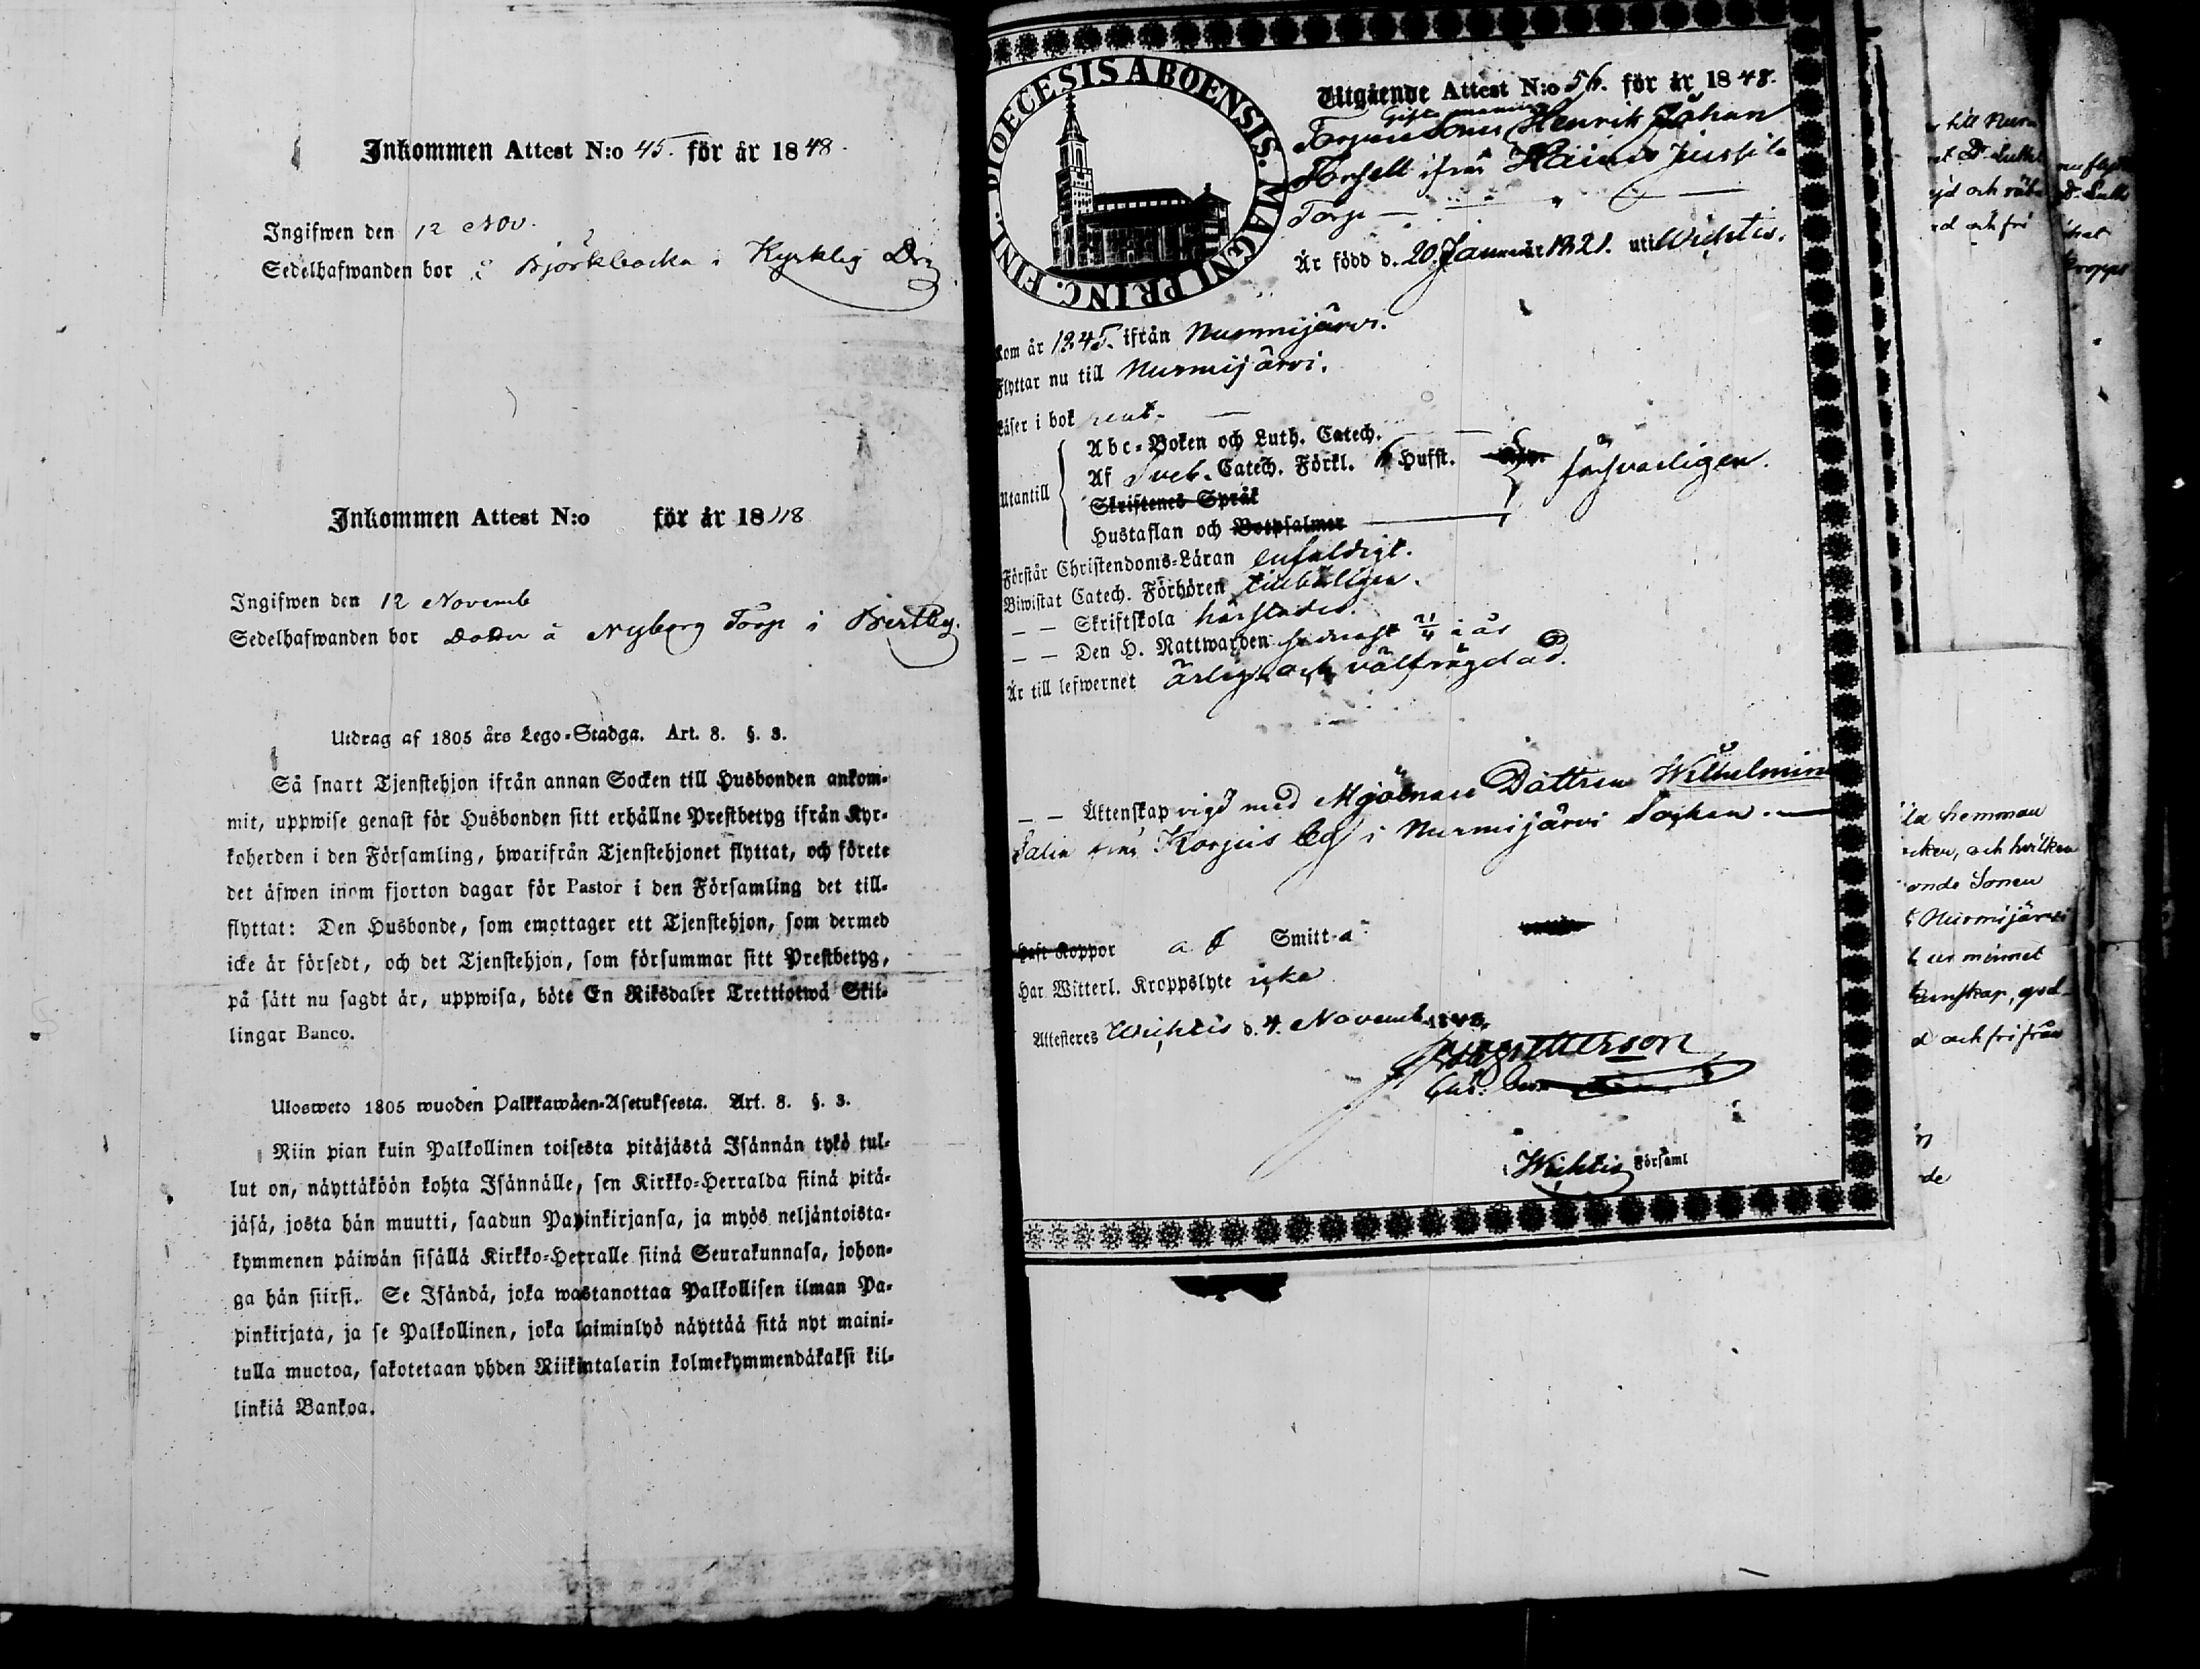 Inkommen Attest N:o 45. för år 1848.
Ingifwen den 12 Nov.
Sedelhafwanden bor å Björkbacka i Kyrklig
Inkommen Attest N:o för år 1848
Ingifwen den 12 Novemb
Sedelhafwanden bor å Nyborg Torp i
Utdrag af 1805 års Lego-Stadga. Art. 8. §. 3.
Så snart Tjenstehjon ifrån annan Socken till Husbonden ankom-
mit, uppwise genast för Husbonden sitt erhållne Prestbetyg ifrån Kyr-
koherden i den Församling, hwarifrån Tjenstehjonet flyttat, och förete
det äfwen inom fjorton dagar för Pastor i den Församling det till-
flyttat: Den Husbonde, som emottager ett Tjenstehjon, som dermed
icke är försedt, och det Tjenstehjon, som försummar sitt Prestbetyg,
på sätt nu sagdt är, uppwisa, böte En Riksdaler Trettiotwå Skil-
lingar Banco.
Ulosweto 1805 wuoden Palkkawäen-Asetuksesta. Art. 8. §. 3.
Niin pian kuin Palkollinen toisesta pitäjästä Isännän tykö tul-
lut on, näyttäköön kohta Isännälle, sen Kirkko-Herralda siinä pitä-
jäsä, josta hän muutti, saadun Papinkirjansa, ja myös neljäntoista-
kymmenen päiwän sisällä Kirkko-Herralle siinä Seurakunnasa, johon-
ga hän siirsi. Se Isändä, joka wastanottaa Palkollisen ilman Pa-
pinkirjata, ja se Palkollinen, joka laiminlyö näyttää sitä nyt maini-
tulla muotoa, sakotetaan yhden Riikintalarin kolmekymmendäkaksi kil-
linkiä Bankoa.
DIOECESIS ABOENSIS. MAGNI PRINC. FINL.
Utgående Attest N:o 56. för år 1848.
Gifte
Henrik Johan
Forsell ifrån Jussila
Torp
Är född d. 20 Januarii 1821. uti Wichtis.
Kom år 1845. ifrån Nurmijärvi.
Flyttar nu till Nurmijärvi.
Läser i bok rent.
Utantill
Abc-Boken och Luth. Catech.
Af Sveb. Catech. Förkl. 6 Hufst. försvarligen.
Skriftenes Språk
Hustaflan och Botpsalmer
Förstår Christendoms-Läran enfaldigt.
Biwistat Catech. Förhören
— — Skriftskola härstädes.
— — Den H. Nattwarden sednast 21/4 i år
Är till lefwernet ärlig och välfrägdad.
— — Äktenskap vigd med Mjölnare Dottren Wilhelmin
ifrån Korpis by i Nurmijärvi Socken.
Haft Koppor a f Smitt-a
Har Witterl. Kroppslyte icke
Attesteres Wichtis d. 4. Novemb 1848.
i Wichtis Församl
till Nurm
hemman
och hvilken
Sonen
Nurmijärvi
ur minnet
och fri från